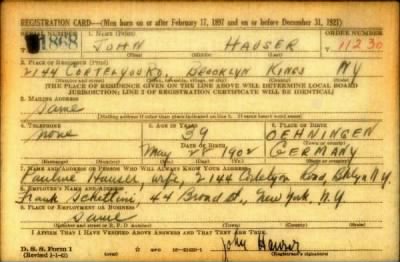 REGISTRATION CARD—(Men born on or after February 17, 1897 and on or before December 31, 1921)
SERIAL NUMBER 1. NAME (Print) ORDER NUMBER
1868 JOHN HAUSER 11230
(First) (Middle) (Last)
2. PLACE OF RESIDENCE (Print)
2144 CORTELYOU RD. BROOKLYN KINGS NY
(Number and street) (Town, township, village, or city) (County) (State)
[THE PLACE OF RESIDENCE GIVEN ON THE LINE ABOVE WILL DETERMINE LOCAL BOARD
JURISDICTION; LINE 2 OF REGISTRATION CERTIFICATE WILL BE IDENTICAL]
3. MAILING ADDRESS
Same
[Mailing address if other than place indicated on line 2. If same insert word same]
4. TELEPHONE 5. AGE IN YEARS 6. PLACE OF BIRTH
None 39 OEHNINGEN
DATE OF BIRTH
May 28 1902 GERMANY
(Exchange) (Number) (Mo.) (Day) (Yr.) (State or country)
7. NAME AND ADDRESS OF PERSON WHO WILL ALWAYS KNOW YOUR ADDRESS
Pauline Hauser, wife, 2144 Cortelyou Road, Bklyn N.Y.
8. EMPLOYER'S NAME AND ADDRESS
Frank 44 Broad St., New York, N.Y.
9. PLACE OF EMPLOYMENT OR BUSINESS
Same
(Number and street or R. F. D. number) (Town) (County) (State)
I AFFIRM THAT I HAVE VERIFIED ABOVE ANSWERS AND THAT THEY ARE TRUE.
D. S. S. Form 1
(Revised 1-1-42) GPO John Hauser
(Registrant's signature)